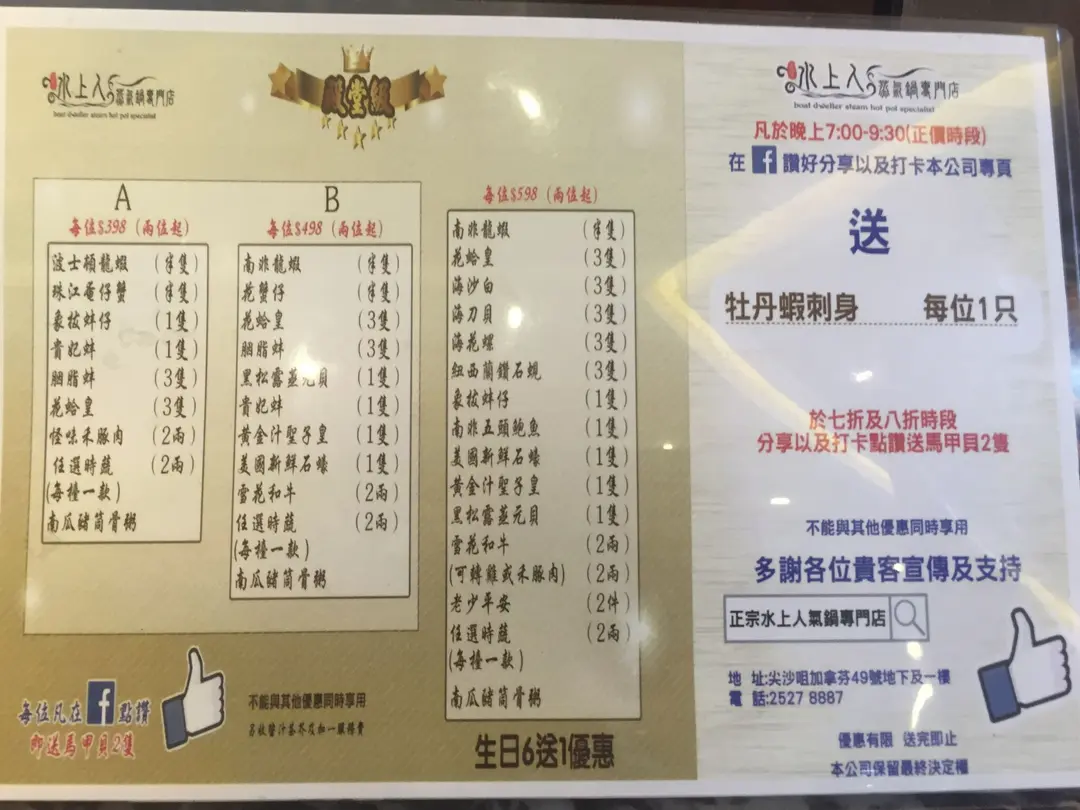 水上人蒸氣鍋專門店
boat dweller steam hot pot specialist
殿堂級
A
每位$398（兩位起）
波士頓龍蝦（半隻）
珠江奄仔蟹（半隻）
象拔蚌仔（1隻）
貴妃蚌（1隻）
胭脂蚌（3隻）
花蛤皇（3隻）
怪味禾豚肉（2兩）
任選時蔬（2兩）
(每檯一款)
南瓜豬筒骨粥
B
每位$498（兩位起）
南非龍蝦（半隻）
花蟹仔（半隻）
花蛤皇（3隻）
胭脂蚌（3隻）
黑松露蒸元貝（1隻）
貴妃蚌（1隻）
黃金汁聖子皇（1隻）
美國新鮮石蠔（1隻）
雪花和牛（2兩）
任選時蔬（2兩）
(每檯一款)
南瓜豬筒骨粥
每位$598（兩位起）
南非龍蝦（半隻）
花蛤皇（3隻）
海沙白（3隻）
海刀貝（3隻）
海花螺（3隻）
紐西蘭鑽石蜆（3隻）
象拔蚌仔（1隻）
南非五頭鮑魚（1隻）
美國新鮮石蠔（1隻）
黃金汁聖子皇（1隻）
黑松露蒸元貝（1隻）
雪花和牛（2兩）
(可轉雞或禾豚肉)（2兩）
老少平安（2件）
任選時蔬（2兩）
(每檯一款)
南瓜豬筒骨粥
每位凡在f點讚
即送馬甲貝2隻
不能與其他優惠同時享用
另收醬汁茶芥及加一服務費
生日6送1優惠
水上人蒸氣鍋專門店
boat dweller steam hot pot specialist
凡於晚上7:00-9:30(正價時段)
在f讚好分享以及打卡本公司專頁
送
牡丹蝦刺身 每位1只
於七折及八折時段
分享以及打卡點讚送馬甲貝2隻
不能與其他優惠同時享用
多謝各位貴客宣傳及支持
正宗水上人氣鍋專門店
地 址:尖沙咀加拿芬49號地下及一樓
電 話:2527 8887
優惠有限 送完即止
本公司保留最終決定權